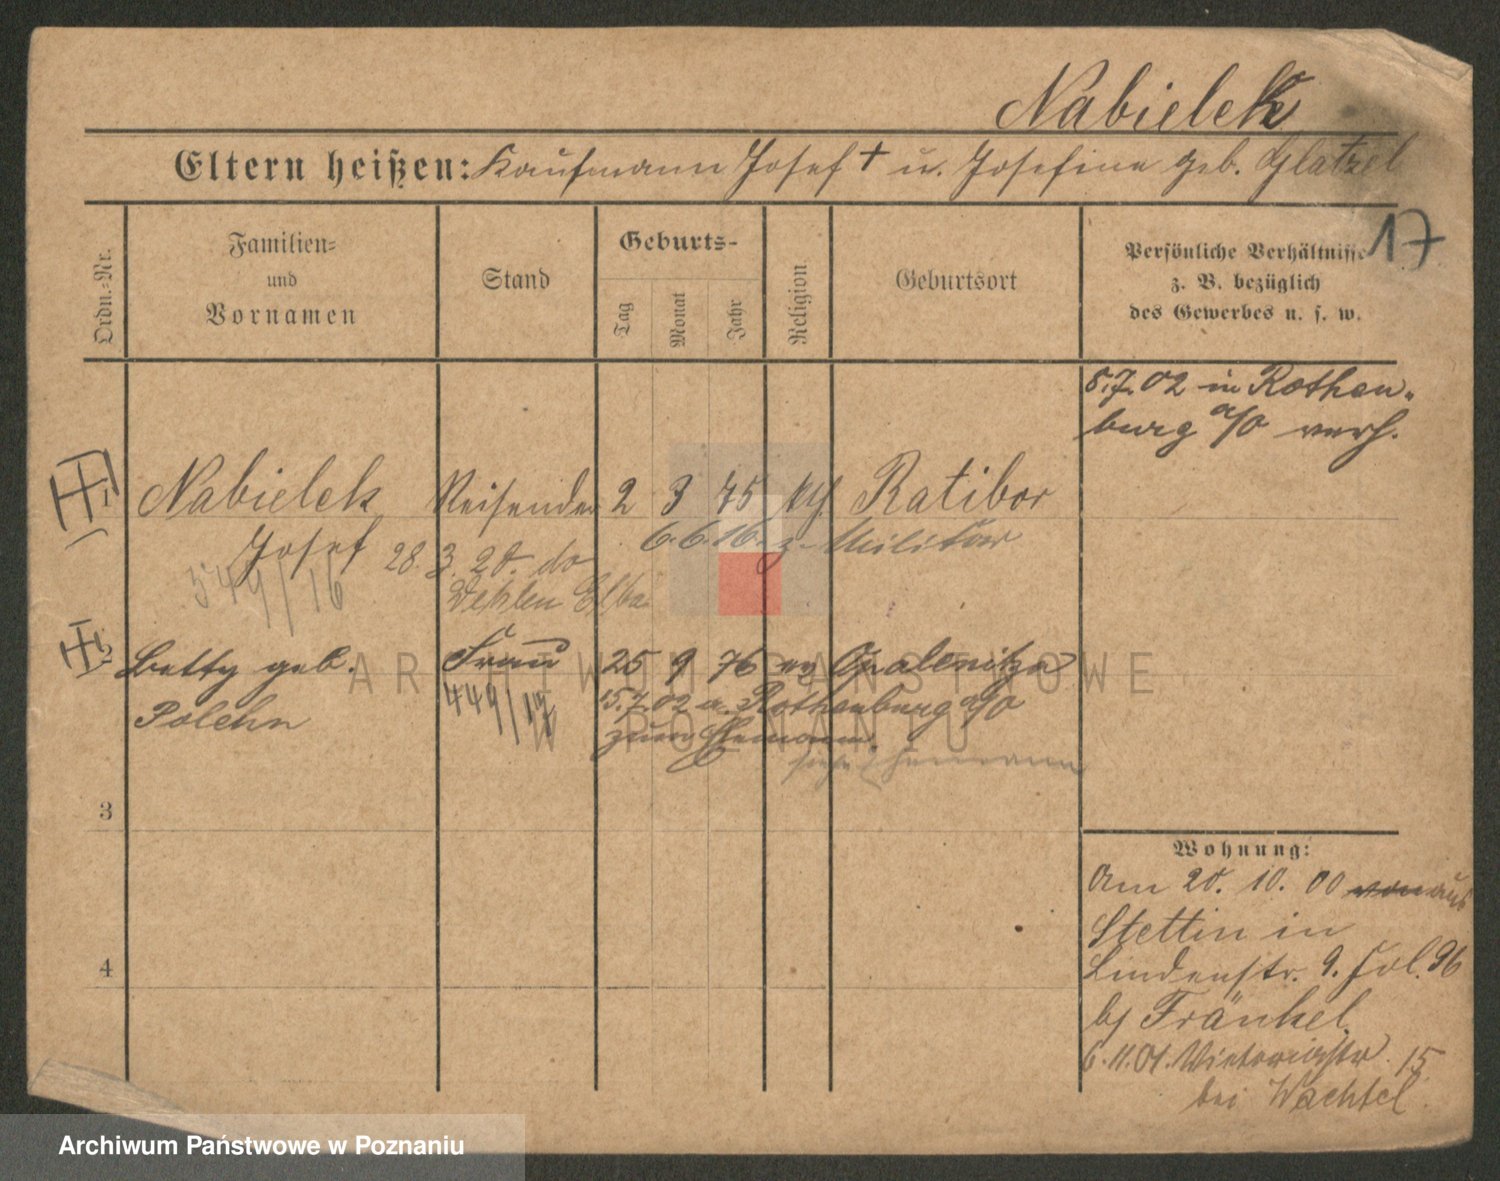 Nabielek
Eltern heißen: Kaufmann Josef † u. Josefine geb. Glatzel
17
Ordn.-Nr.
Familien-
und
Vornamen
Stand
Geburts-
Tag
Monat
Jahr
Religion.
Geburtsort
Persönliche Verhältnisse
z. B. bezüglich
des Gewerbes u. s. w.
8.7.02 in Rothen-
burg a/O verh.
1 Nabielek Reisender 2 3 75 Ratibor
6.6.16. z. Militär
Josef 28. 3. 20. do
549/16
2 Betty geb. Frau 25 9 76 Opalenitza
Polehn 449/17 15.7.02 a. Rothenburg a/O
zum Ehemann.
siehe Ehemann
3
4
Wohnung:
Am 20. 10. 00 aus
Stettin in
Lindenstr. 9.
bj Fränkel
6.11.01. Viktoriastr. 15
bei Wachtel
ARCHIWUM PAŃSTWOWE
W POZNANIU
Archiwum Państwowe w Poznaniu